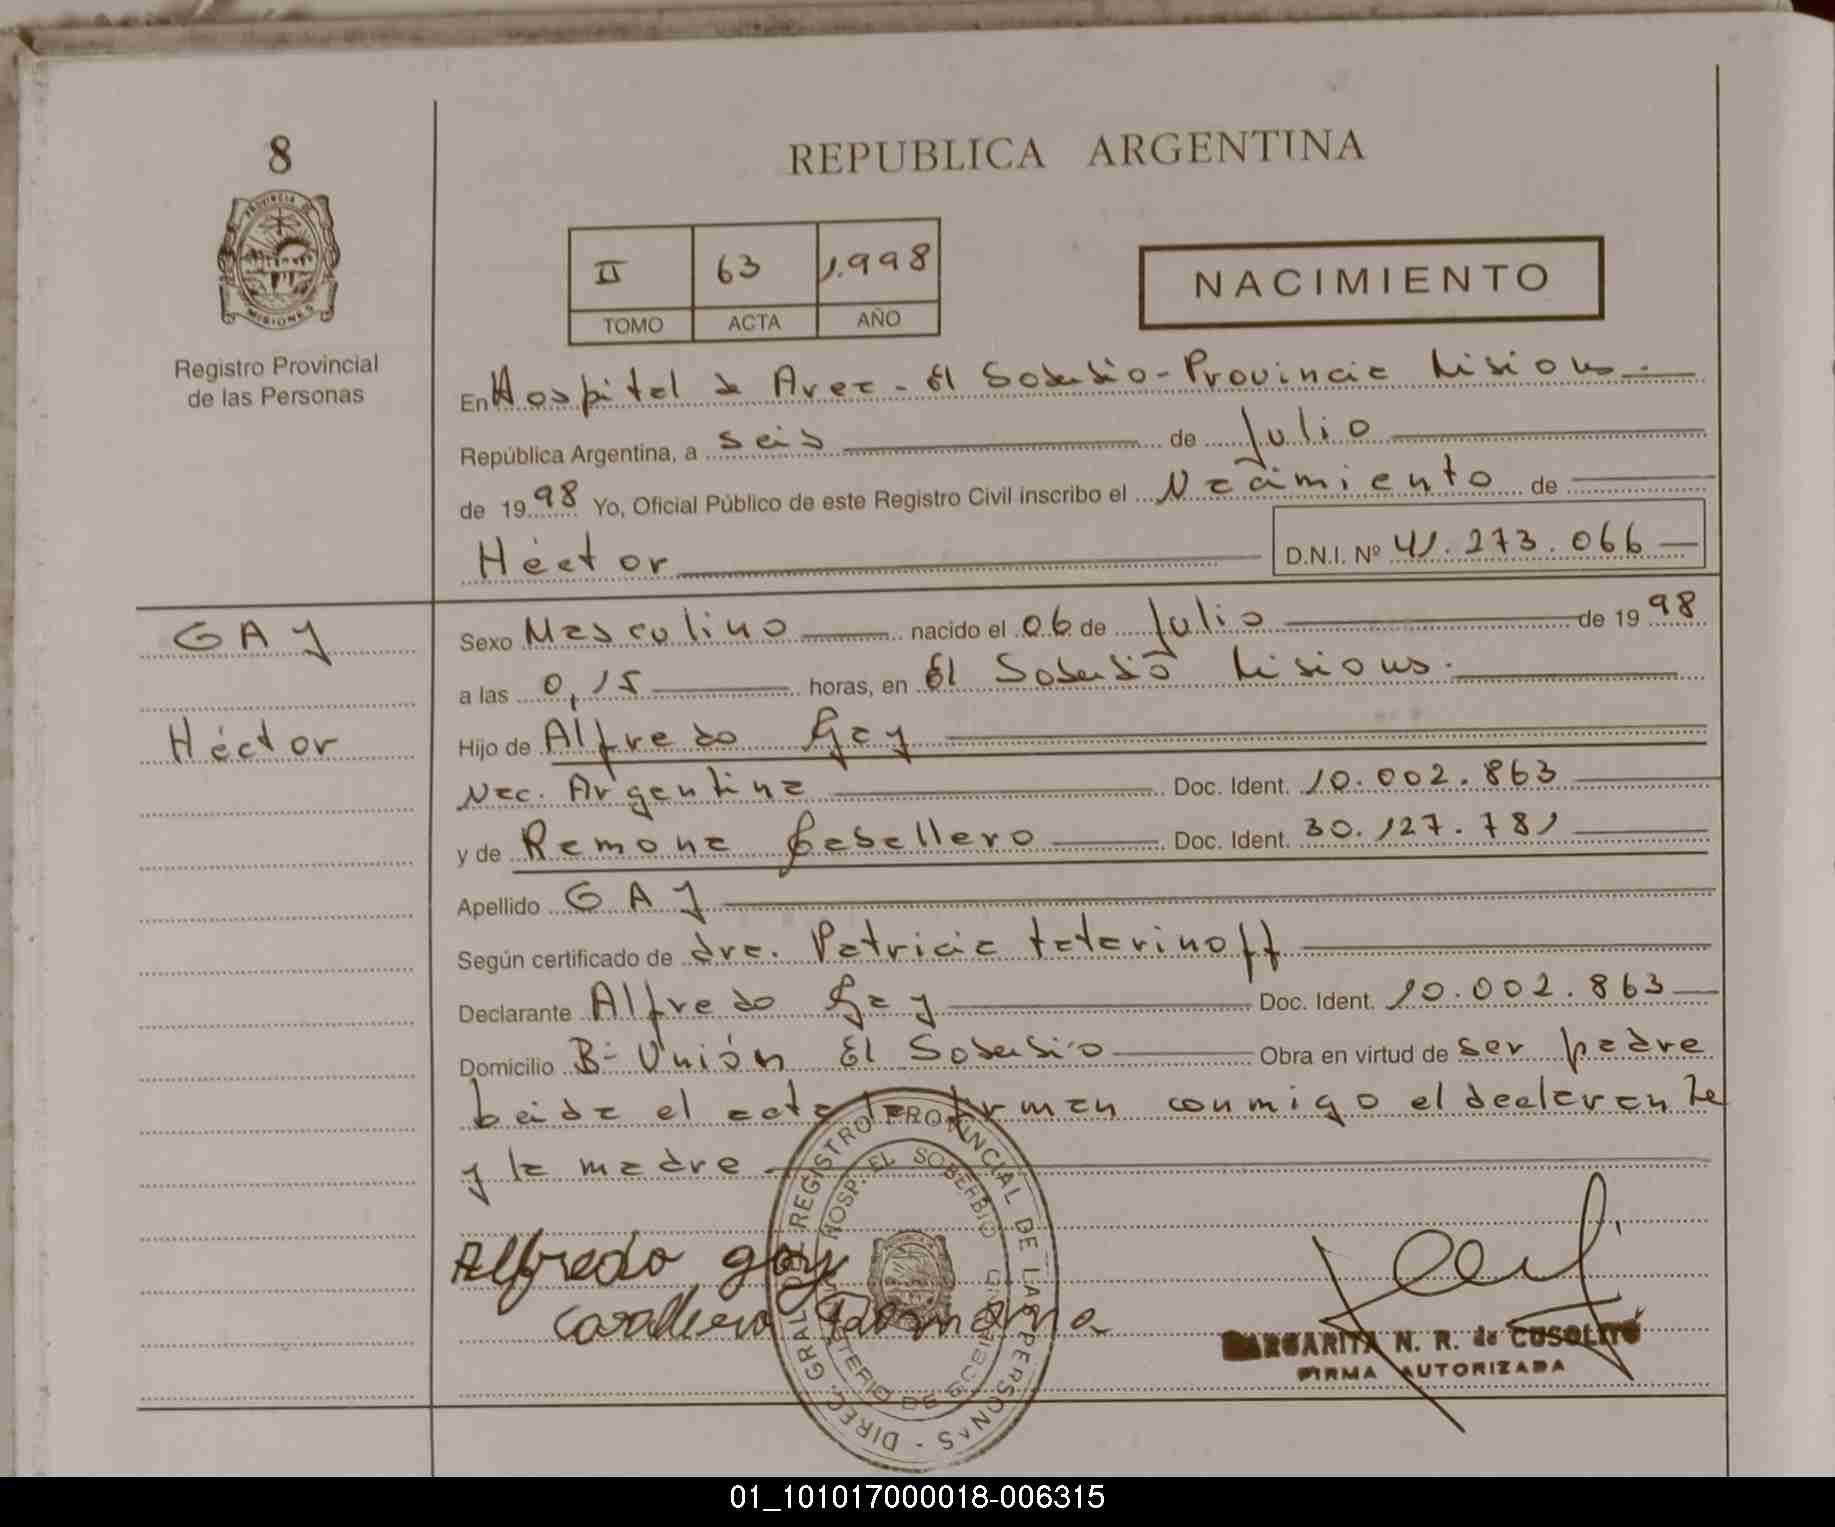 8
PROVINCIA DE
MISIONES
Registro Provincial
de las Personas
REPUBLICA ARGENTINA
II 63 1.998
TOMO ACTA AÑO
NACIMIENTO
En Hospital de Area - El Soberbio - Provincia Misiones.
República Argentina, a seis de Julio
de 1998 Yo, Oficial Público de este Registro Civil inscribo el Nacimiento de
Héctor D.N.I. Nº 41.273.066
GAY
Héctor
Sexo Masculino nacido el 06 de Julio de 1998
a las 0,15 horas, en El Soberbio Misiones.
Hijo de Alfredo Gay
Nac. Argentina Doc. Ident. 10.002.863
y de Ramona Caballero Doc. Ident. 30.127.781
Apellido GAY
Según certificado de dra. Patricia tatarinoff
Declarante Alfredo Gay Doc. Ident. 10.002.863
Domicilio Bº Unión El Soberbio Obra en virtud de ser padre
Leida el acta la firman conmigo el declarante
y la madre
Alfredo gay
Cavallero Ramona
DIREC. GRAL DEL REGISTRO PROVINCIAL DE LAS PERSONAS
HOSP. EL SOBERBIO
MARGARITA N. R. de CUSOLITO
FIRMA AUTORIZADA
01_101017000018-006315